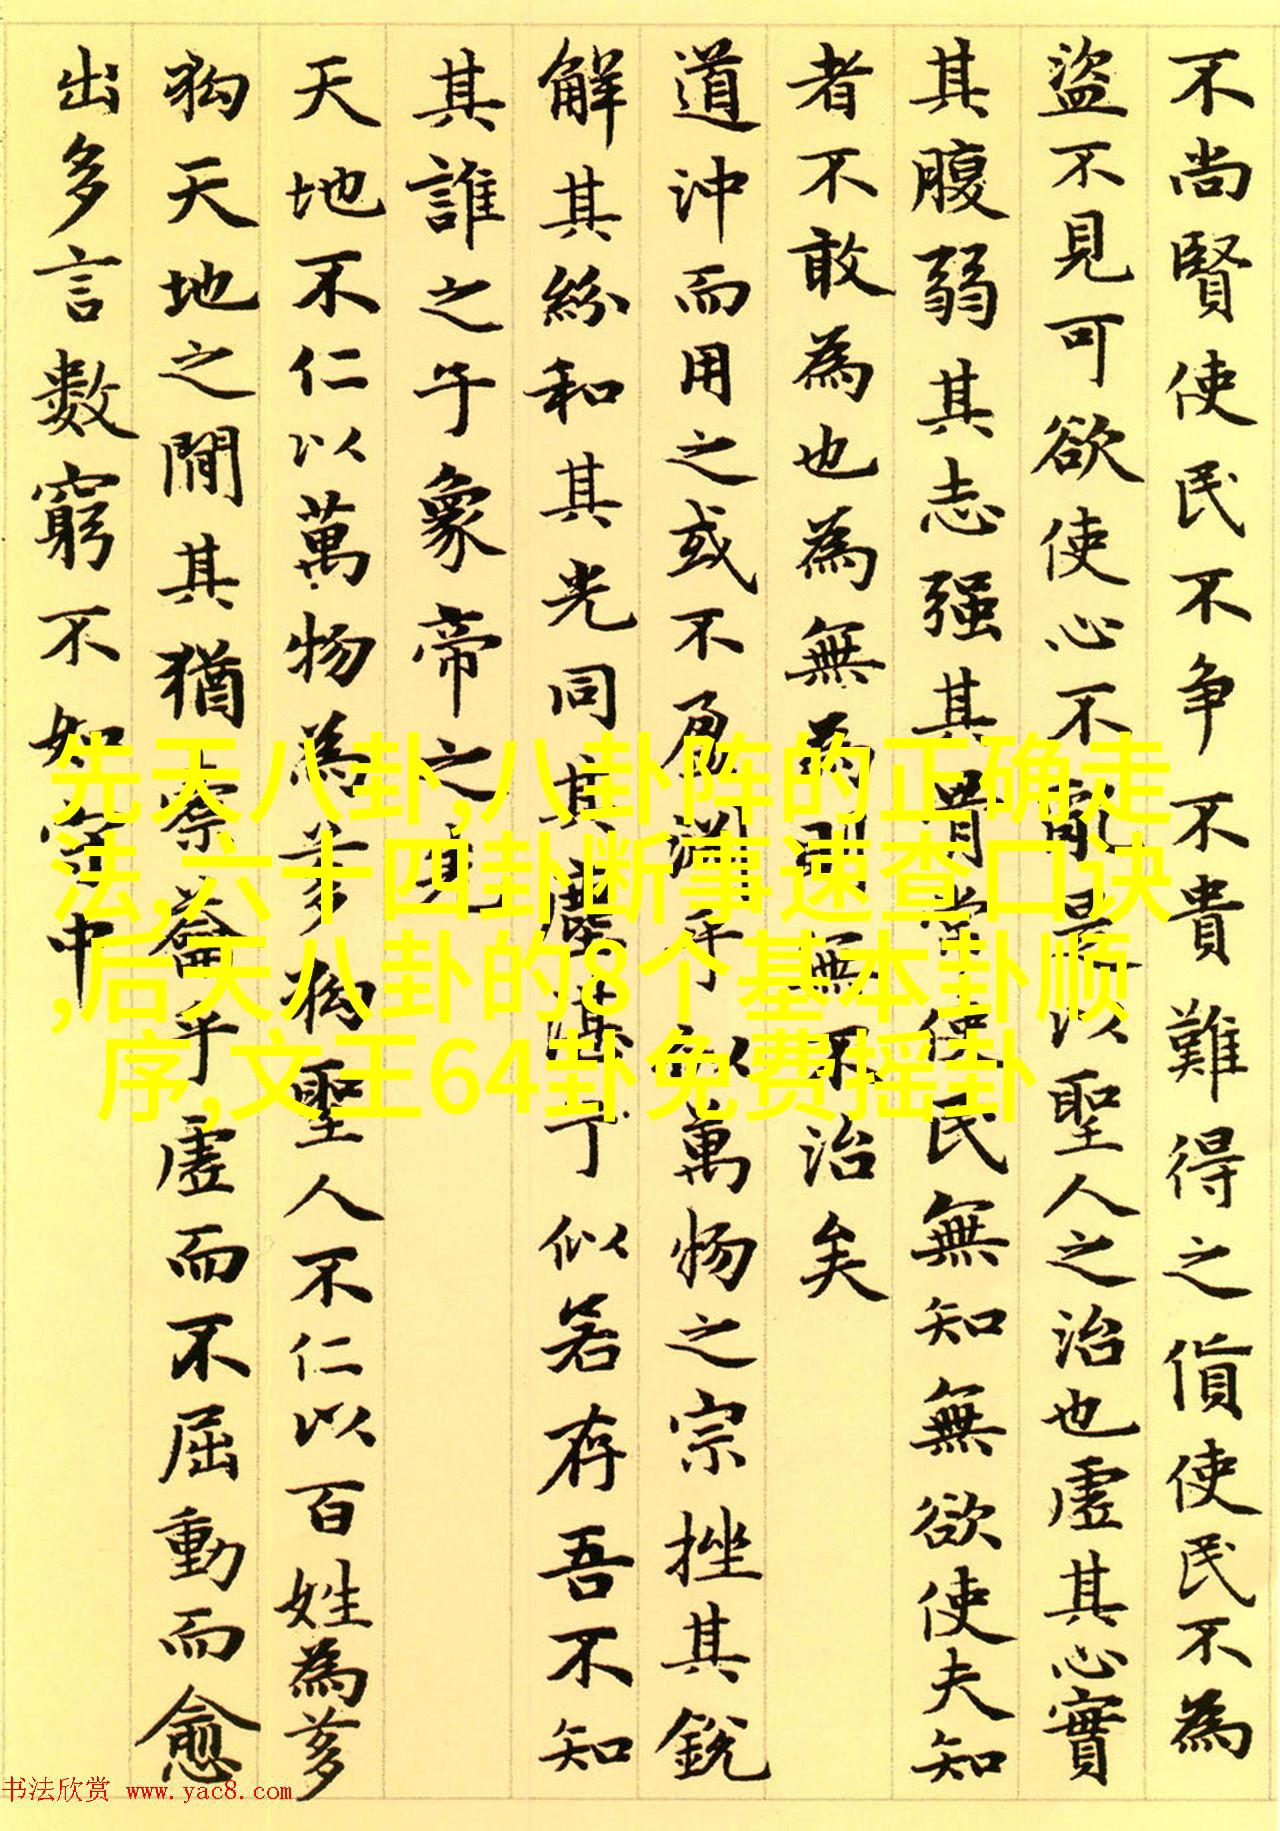 不尚賢使民不争不貴難得之貨使民不為
盜不見可欲使心不亂是以聖人之治也虛其心實
其腹弱其志强其骨常使民無知無欲使夫知
者不敢為也為無為則無不治矣
道沖而用之或不盈淵乎似萬物之宗挫其銳
解其紛和其光同其塵湛兮似若存吾不知
其誰之子象帝之先
天地不仁以萬物為芻狗聖人不仁以百姓為芻
狗天地之間其猶橐籥乎虛而不屈動而愈
出多言數窮不如守中
先天八卦,八卦阵的正确走
法,六十四卦断事速查口诀
,后天八卦的8个基本卦顺
序,文王64卦免费摇卦
书法欣赏 www.yac8.com